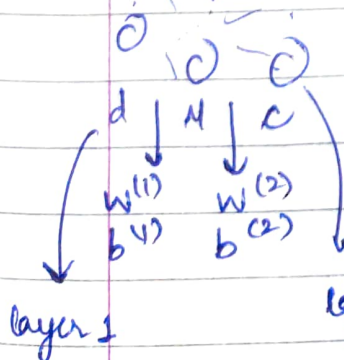 d M C
W(1) W(2)
b(1) b(2)
layer 1